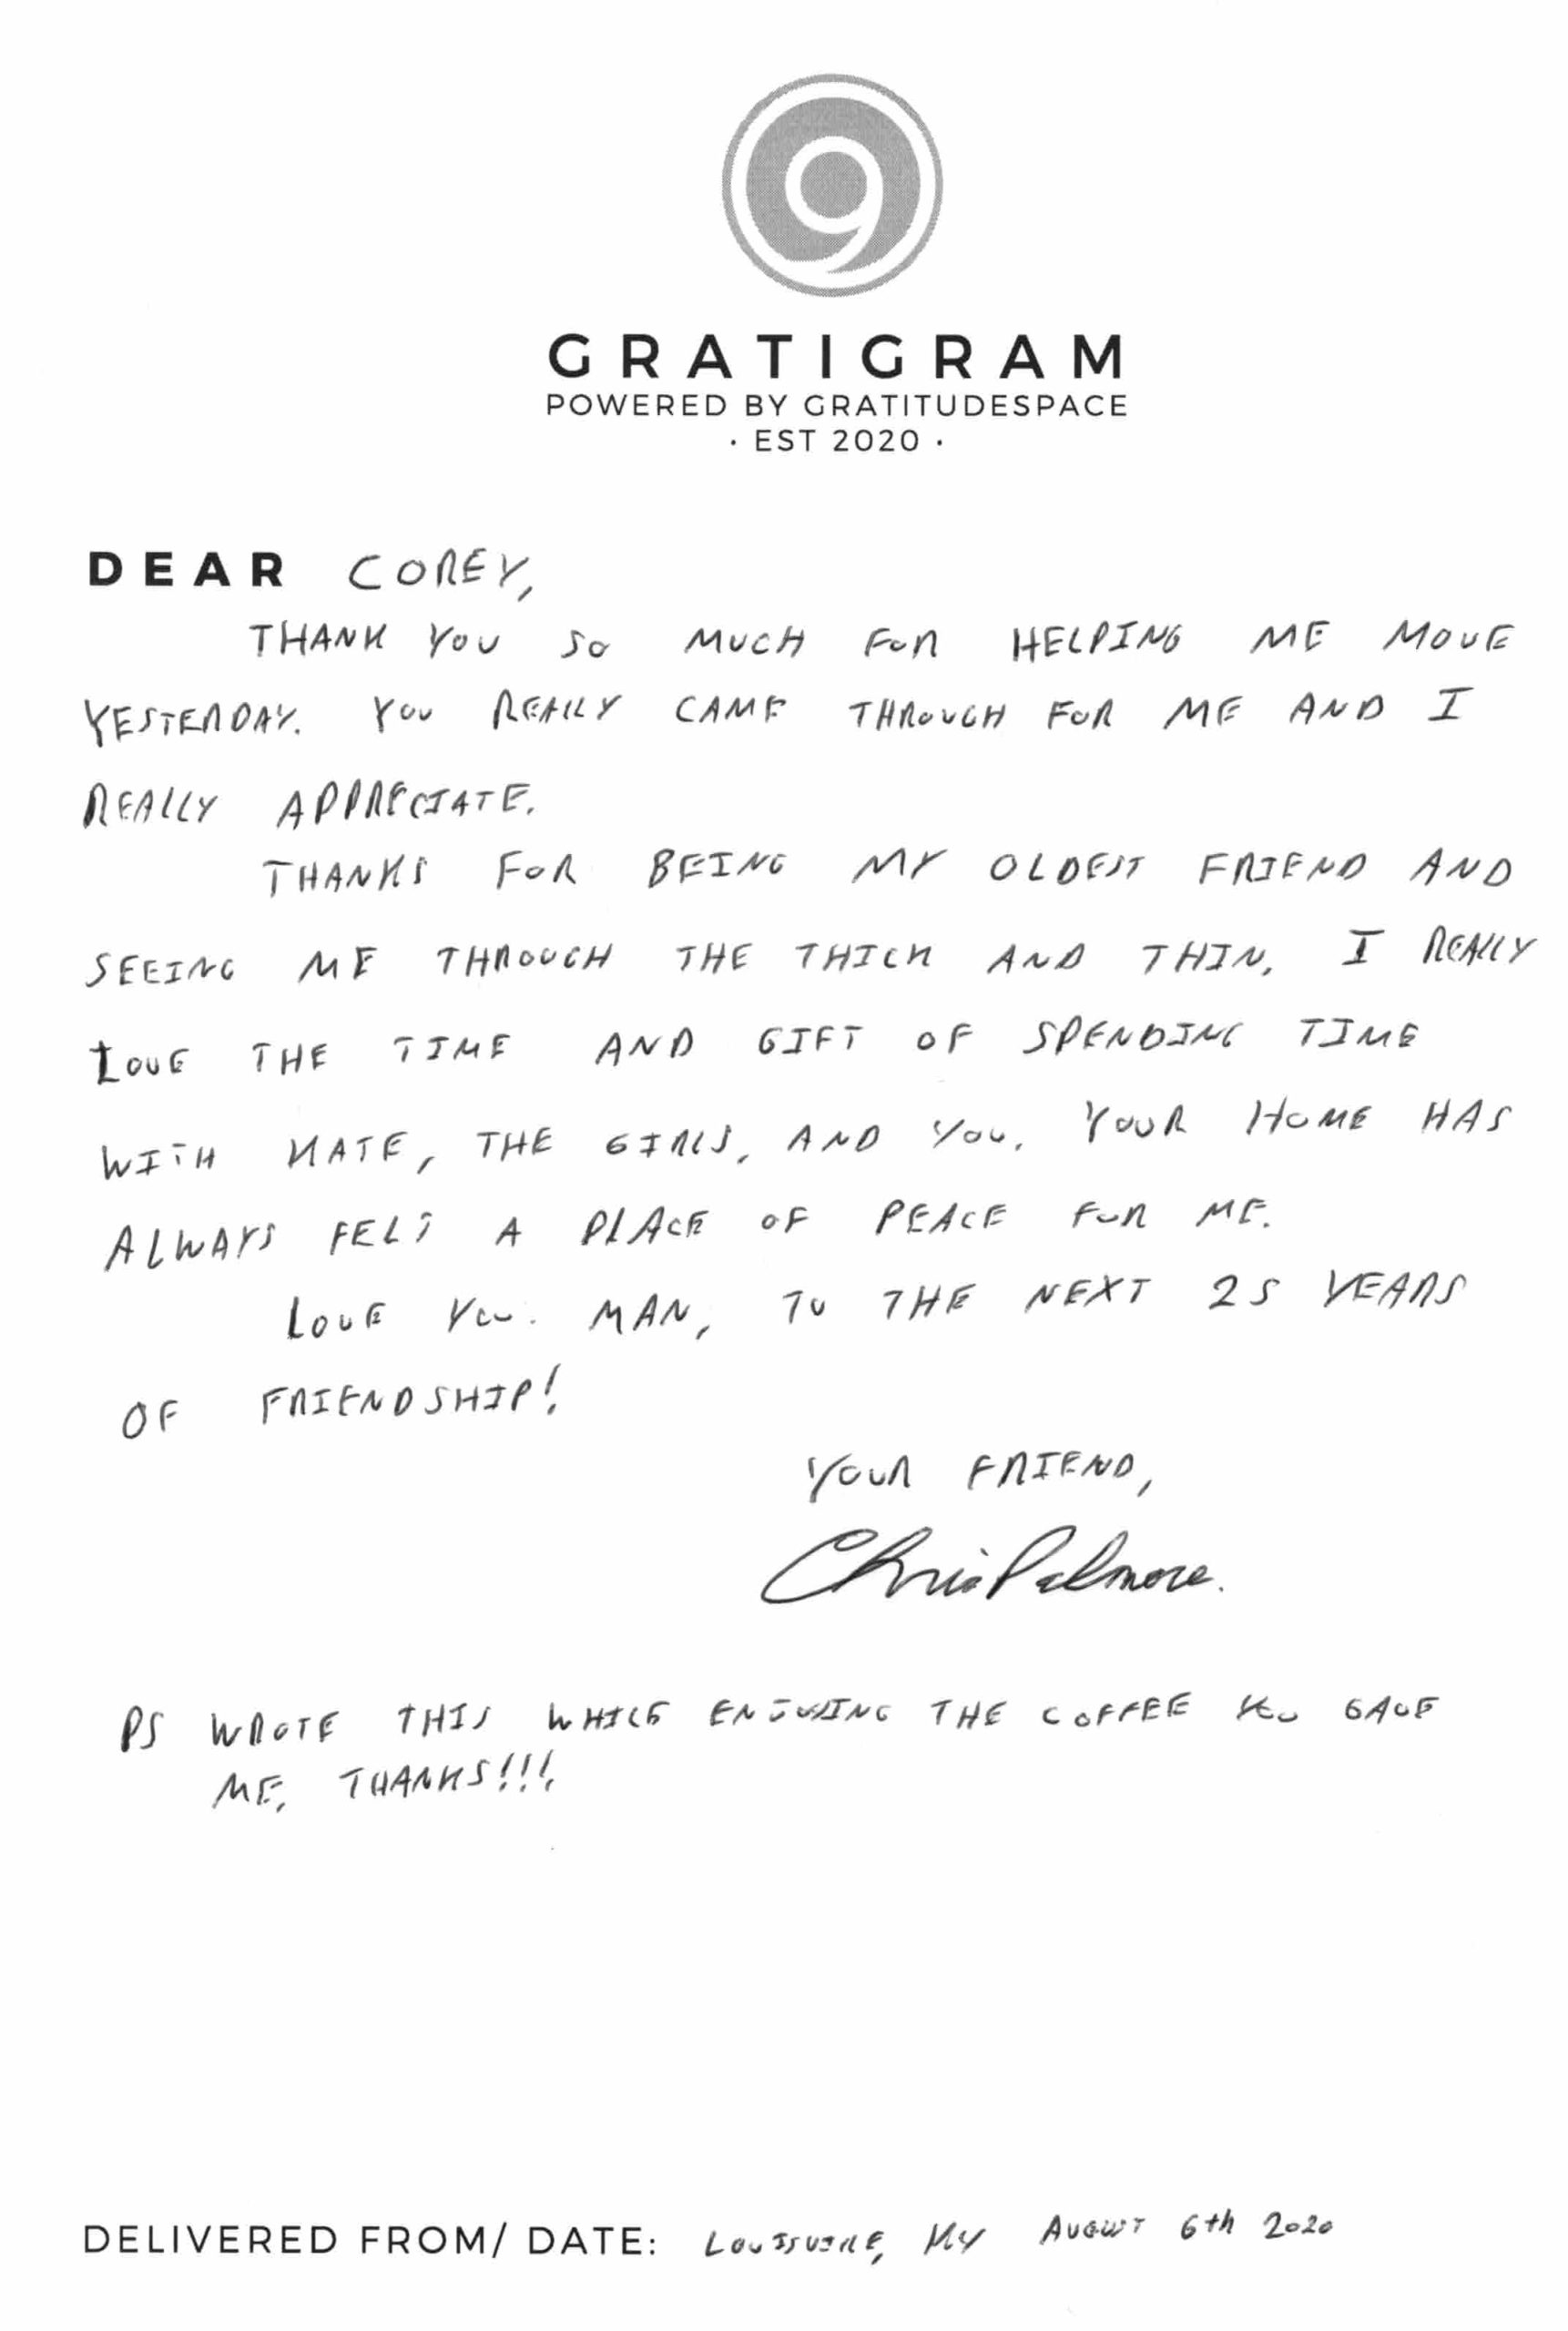 GRATIGRAM
POWERED BY GRATITUDESPACE
· EST 2020 ·
DEAR COREY,
THANK YOU SO MUCH FOR HELPING ME MOVE
YESTERDAY. YOU REALLY CAME THROUGH FOR ME AND I
REALLY APPRECIATE.
THANKS FOR BEING MY OLDEST FRIEND AND
SEEING ME THROUGH THE THICK AND THIN. I REALLY
LOVE THE TIME AND GIFT OF SPENDING TIME
WITH KATE, THE GIRLS, AND YOU. YOUR HOME HAS
ALWAYS FELT A PLACE OF PEACE FOR ME.
LOVE YOU MAN, TO THE NEXT 25 YEARS
OF FRIENDSHIP!
YOUR FRIEND,
Chris Palmore.
PS WROTE THIS WHILE ENJOYING THE COFFEE YOU GAVE
ME, THANKS!!!
DELIVERED FROM/ DATE: LOUISVILLE, KY AUGUST 6th 2020